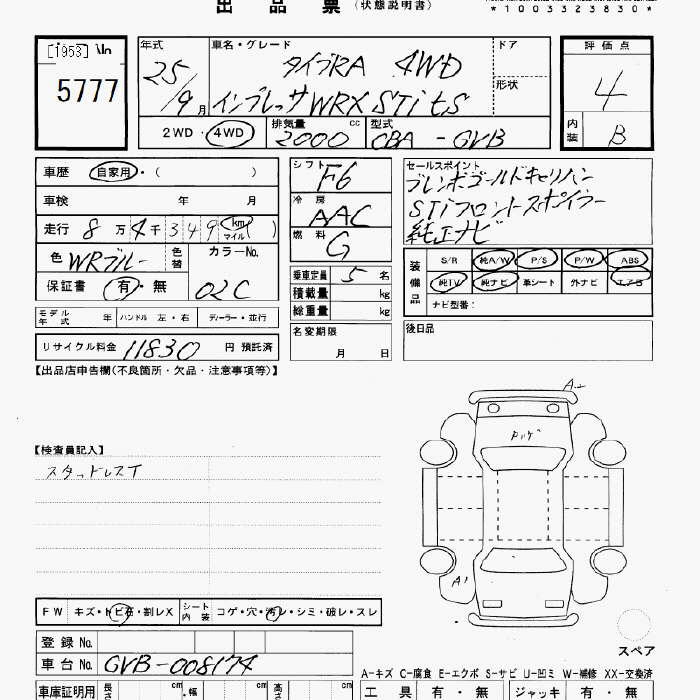 出品票 (状態説明書)
*1003323830*
[1953]
5777
年式 車名・グレード ドア 評価点
25/9月 タイプRA 4WD 形状
インプレッサWRX STi tS 4
2WD・4WD 排気量 cc 型式 内装
2000 CBA-GVB B
車歴 自家用・( )
車検 年 月
走行 8万4千349 km マイル
色 WRブルー 色替 カラーNo.
保証書 有・無 02C
モデル年式 年 ハンドル 左・右 ディーラー・並行
リサイクル料金 11830 円 預託済
シフト F6
冷房 AAC
燃料 G
乗車定員 5名
積載量 kg
総重量 kg
名変期限
月 日
セールスポイント
ブレンボゴールドキャリパー
STiフロントスポイラー
純正ナビ
装備品 S/R 純A/W P/S P/W ABS
純TV 純ナビ 革シート 外ナビ エアB
ナビ型番:
後日品
【出品店申告欄(不良箇所・欠品・注意事項等)】
【検査員記入】
スタッドレスT
A2
A1
スペア
FW キズ・トビ石・割レX シート内装 コゲ・穴・汚レ・シミ・破レ・スレ
登録No.
車台No. GVB-008174
A-キズ C-腐食 E-エクボ S-サビ U-凹ミ W-補修 XX-交換済
車庫証明用 長さ cm 幅 cm 高さ cm 工具 有・無 ジャッキ 有・無